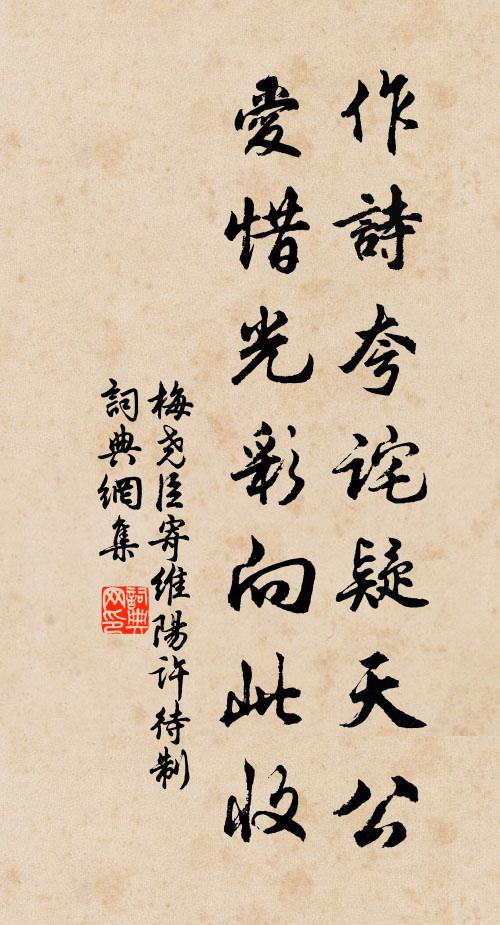 作詩夸詫疑天公
愛惜光彩向此收
梅尧臣寄維陽许待制
詞典網集
詞典网印